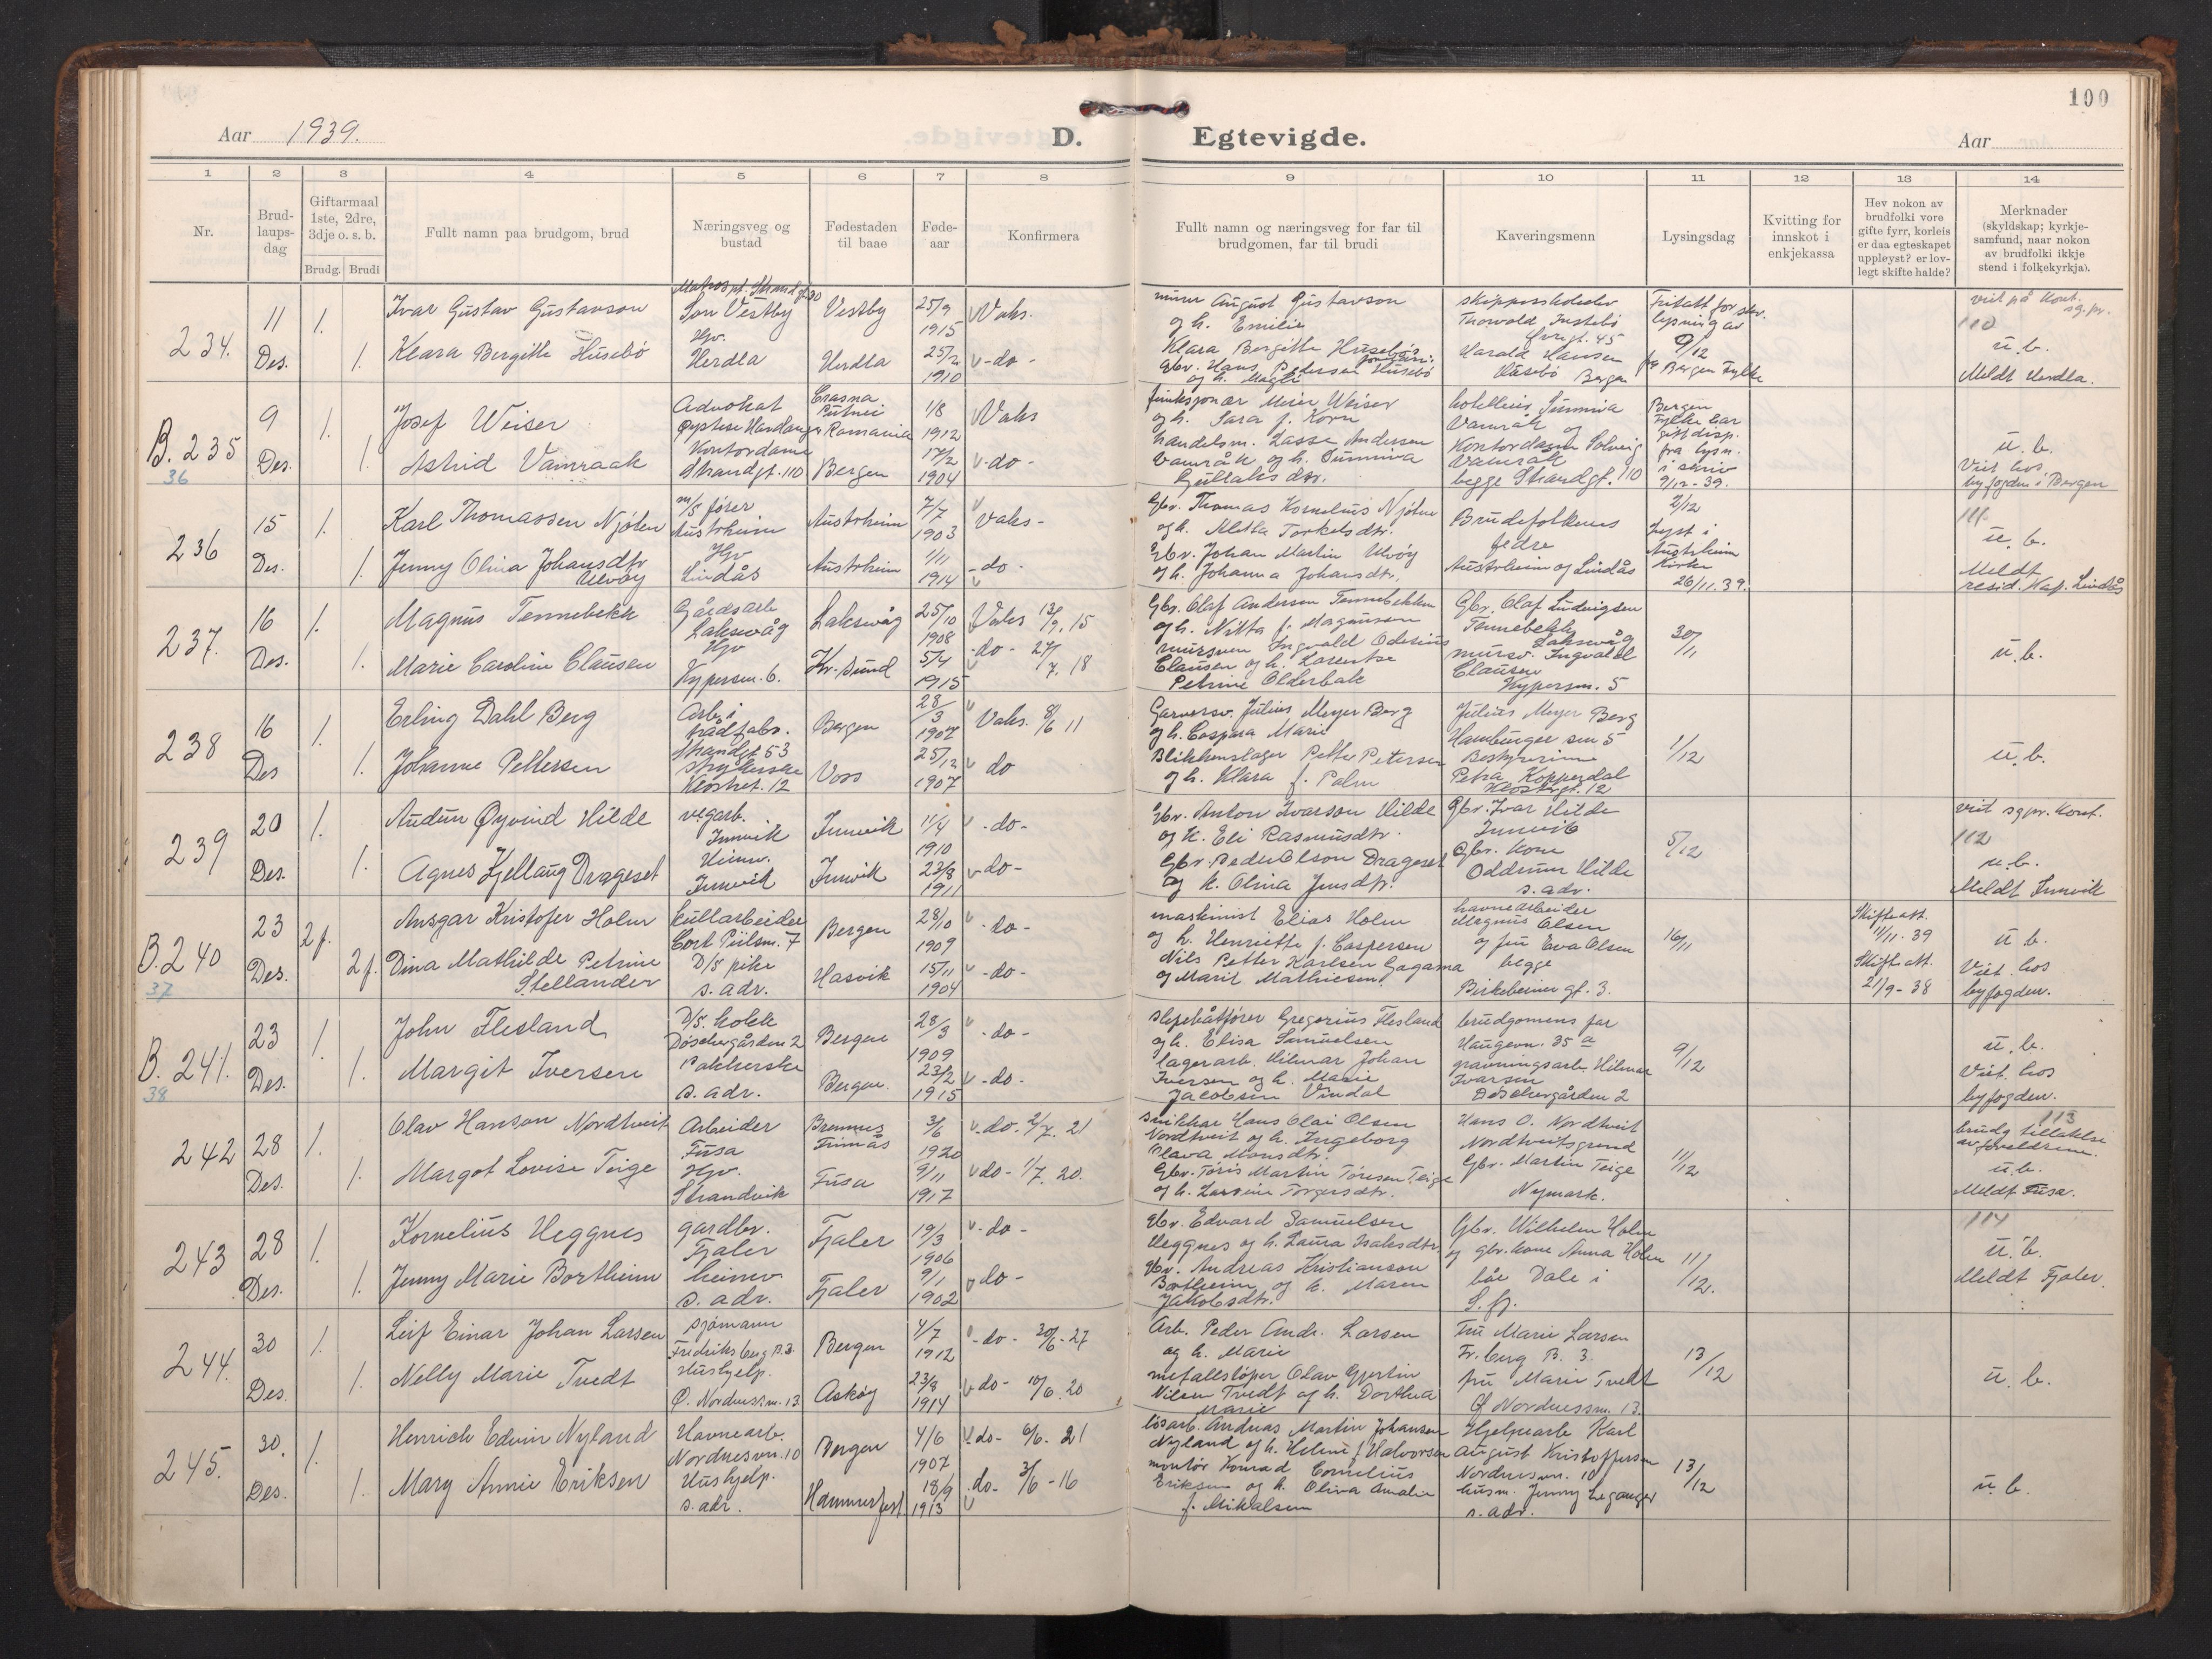 100
Aar 1939.
D. Egtevigde.
Aar
1 2 3 4 5 6 7 8 9 10 11 12 13 14
Nr.
Brud-
laups-
dag
Giftarmaal
1ste, 2dre,
3dje o. s. b.
Brudg. Brudi
Fullt namn paa brudgom, brud
Næringsveg og
bustad
Fødestaden
til baae
Føde-
aar
Konfirmera
Fullt namn og næringsveg for far til
brudgomen, far til brudi
Kaveringsmenn
Lysingsdag
Kvitting for
innskot i
enkjekassa
Hev nokon av
brudfolki vore
gifte fyrr, korleis
er daa egteskapet
uppløyst? er lov-
legt skifte halde?
Merknader
(skyldskap; kyrkje-
samfund, naar nokon
av brudfolki ikkje
stend i folkekyrkja).
234.
11
Des.
1.
1.
Ivar Gustav Gustavson
Klara Bergitte Husebö
Son Vestby
Hjv.
Herdla
Vestby
Herdla
25/9
1915
25/2
1910
Vaks.
-do-
murer August Gustavson
og h. Emilie
Klara Bergitte Husebö's
gbr. Hans Pedersen Husebö
og h. Magli
Thorvald Instebö
Harald Hansen
Husebö Bergen
Fritatt for
lysning av
9/12
Bergen Fylke
viet på kont.
110
u.b.
Meldt Herdla.
B. 235
36
9
Des.
1.
1.
Josef Weiser
Astrid Vamraak
Advokat
Øystese Hardanger
Kontordame
Strandgt. 110
Crasna
Putnei
Romania
Bergen
1/8
1912
17/2
1904
Vaks
-do-
funksjonær Meier Weiser
og h. Sara f. Korn
handelsm. Lasse Andersen
Vamråk og h. Sunniva
Gullaksdtr.
hotelleier Sunniva
Vamråk og
Kontordamen Solveig
Vamråk
begge Strandgt. 110
Bergen
Fylke har
gitt disp.
fra lysn.
i skriv
9/12-39.
u.b.
Viet hos
byfogden i Bergen
236
15
Des.
1.
1.
Karl Thomassen Njöten
Jenny Olina Johansdtr
Ulvöy
m/s fører
Austrheim
Hjv
Lindås
Austrheim
Austrheim
7/7
1903
1/11
1914
Vaks-
-do-
Gbr. Thomas Kornelius Njöten
og h. Metta Torkelsdtr.
Gbr. Johan Martin Ulvöy
og h. Johanna Johansdtr.
Brudefolkenes
fedre
Austrheim og Lindås
2/12
Lyst i
Austrheim
Kirke
26/11.39.
111.
u.b.
Meldt
resid. Kap. Lindås
237.
16
Des.
1.
1.
Magnus Tennebekk
Marie Caroline Clausen
Gårdsarb
Laksevåg
Hjv
Kypersm. 6.
Laksevåg
Kr. sund
25/10
1908
5/4
1915
Vaks 13/9.15
-do- 27/7.18
Gbr. Olaf Andersen Tennebekken
og h. Nitta f. Magnussen
mursven Ingvald Odinius
Clausen og h. Lorentse
Petrine Olderbak
Gbr. Olaf Ludvigsen
Tennebekk
Laksevåg
mursv. Ingvald
Clausen
Kypersm. 5
30/11
u.b.
238
16
Des
1.
1.
Erling Dahl Berg
Johanne Pettersen
Arb. i
trådfabr.
Strandgt 53
strykerske
Klostret. 12
Bergen
Voss
28/3
1907
25/12
1907
Vaks. 8/6 11
do
Garversv. Julius Meyer Berg
og h. Caspara Marie
Blikkenslager Petter Petersen
og h. Klara f. Palm
Julius Meyer Berg
Hamburger sm 5
Bestyrerinne
Petra Kopperdal
Klostergt. 12
1/12
u.b.
239
20
Des.
1.
1.
Audun Øyvind Hilde
Agnes Kjellaug Drageset
vegarb.
Innvik
Heimv.
Innvik
Innvik
Innvik
11/4
1910
23/8
1911
-do-
-do-
Gbr. Anton Ivarson Hilde
og k. Eli Rasmusdtr.
Gbr. Peder Olson Drageset
og k. Olina Jensdtr.
Gbr. Ivar Hilde
Innvik
Gbr. Kone
Oddrun Hilde
s. adr.
5/12
viet sgpr. kont.
112
u.b.
Meldt Innvik
B. 240
37
23
Des.
2 f.
2 f.
Ansgar Kristofer Holm
Dina Mathilde Petrine
Stellander
kullarbeider
Cort Piilsm. 7
D/s pike
s. adr.
Bergen
Hasvik
28/10
1909
15/11
1904
-do-
-do-
maskinist Elias Holm
og h. Henriette f. Caspersen
Nils Petter Karlsen Gagama
og Marit Mathiesen.
havnearbeider
Magnus Olsen
og fru Eva Olsen
begge
Birkebeiner gt. 3.
16/11
Skifteatt.
11/11-39
Skifteatt.
21/9-38
u.b.
Viet hos
byfogden.
B. 241.
38
23
Des.
1.
1.
John Flesland
Margit Iversen
D/s. kokk
Døschergården 2
Pakkerske
s. adr.
Bergen
Bergen.
28/3
1909
23/2
1915
-do-
-do-
slepebåtfører Gregorius Flesland
og h. Elisa Samuelsen
lagerarb. Hilmar Johan
Iversen og h. Marie
Jacobsen Vindal
brudgomens far
Haugevn. 35 a
gravningsarb. Hilmar
Ivarsen
Döschergården 2
9/12
u.b.
Viet hos
byfogden.
242
28
Des.
1.
1.
Olav Hanson Nordtveit
Margot Lovise Teige
Arbeider
Fusa
Hjv.
Strandvik
Fusa
3/6
1920
9/11
1917
-do. 2/7.21
do- 1/7.20.
snikkar Hans Olai Olsen
Nordtveit og h. Ingeborg
Olava Monsdtr.
Gbr. Töris Martin Töresen Teige
og h. Larsine Torgersdtr.
Hans O. Nordtveit
Nordtveitsgrend
Gbr. Martin Teige
Nymark.
11/12
113
brudg tillatelse
av foreldrene.
u.b.
Meldt Fusa.
243
28
Des.
1.
1.
Kornelius Heggnes
Jenny Marie Bortheim
gardbr.
Fjaler
heimv
s. adr.
Fjaler
Fjaler
19/3
1906
9/1
1902
-do-
do-
Gbr. Edvard Samuelsen
Heggnes og h. Laura Isaksdtr
Gbr. Andreas Kristianson
Bortheim og k. Maren
Jakobsdtr.
Gbr. Wilhelm Holm
og gbr. kone Anna Holm
båe Dale i
S.fj.
11/12.
114
u.b.
Meldt Fjaler.
244.
30
Des.
1.
1.
Leif Einar Johan Larsen
Nelly Marie Tvedt
sjömann
Fredriksberg B.3
Hushjelp.
Ø. Nordnessm. 13
Bergen
Askøy
4/7
1912
23/8
1914
-do- 30/6-27
do- 10/6.20
Arb. Peder Andr. Larsen
og h. Marie
metallsløper Olav Gjertin
Nilsen Tvedt og h. Dorthea
Marie
Fru Marie Larsen
Fr.berg B. 3.
fru Marie Tvedt
Ø Nordnessm. 13.
13/12
u.b.
245.
30.
Des.
1.
1.
Henrich Edvin Nyland
Mary Annie Eriksen
Havnearb.
Nordnesvn. 10
Hushjelp.
s. adr.
Bergen
Hammerfest
4/6
1907
18/9
1913
do- 6/6-21
do- 3/6-16
løsarb. Andreas Martin Johansen
Nyland og h. Helene f. Halvorsen
montör Konrad Cornelius
Eriksen og h. Olina Amalie
f. Mikkelsen
Hjelpearb Karl
August Kristoffersen
Nordnesvn. 10
husm. Jenny Leganger
s. adr.
13/12
u.b.